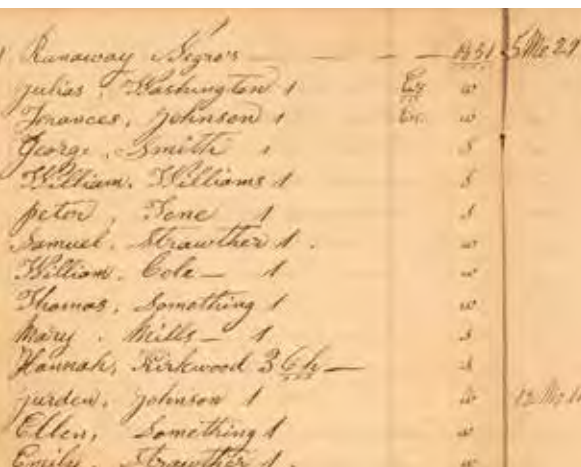 Runaway Negro's — — 1831 5 Mo 29
Julias, Washington 1 w
Frances, Johnson 1 w
George, Smith 1 s
William, Williams 1 s
Peter, Tene 1 s
Samuel, Strawther 1. w
William, Cole — 1 w
Thomas, Something 1 w
Mary, Mills — 1 s
Hannah, Kirkwood 3 Ch — s
Jurden, Johnson 1 w 12 Mo
Ellen, Something 1 w
Emily, Strawther 1. w